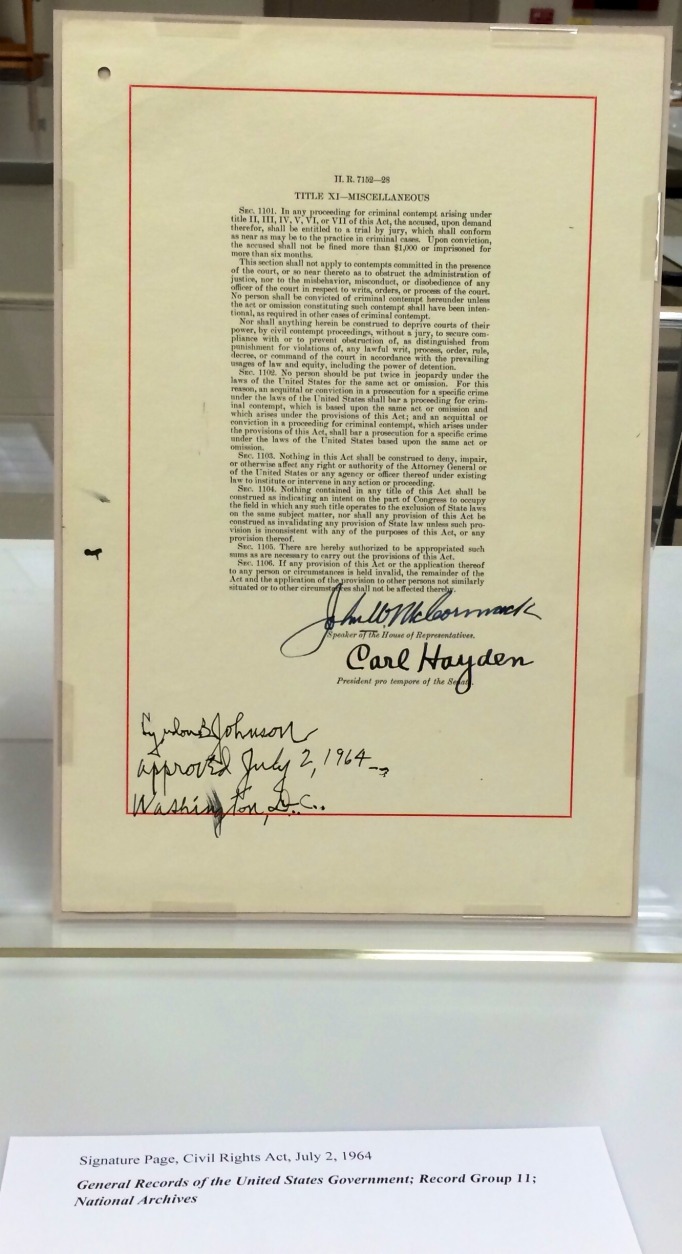 H. R. 7152—28
TITLE XI—MISCELLANEOUS
SEC. 1101. In any proceeding for criminal contempt arising under
title II, III, IV, V, VI, or VII of this Act, the accused, upon demand
therefor, shall be entitled to a trial by jury, which shall conform
as near as may be to the practice in criminal cases. Upon conviction,
the accused shall not be fined more than $1,000 or imprisoned for
more than six months.
This section shall not apply to contempts committed in the presence
of the court, or so near thereto as to obstruct the administration of
justice, nor to the misbehavior, misconduct, or disobedience of any
officer of the court in respect to writs, orders, or process of the court.
No person shall be convicted of criminal contempt hereunder unless
the act or omission constituting such contempt shall have been inten-
tional, as required in other cases of criminal contempt.
Nor shall anything herein be construed to deprive courts of their
power, by civil contempt proceedings, without a jury, to secure com-
pliance with or to prevent obstruction of, as distinguished from
punishment for violations of, any lawful writ, process, order, rule,
decree, or command of the court in accordance with the prevailing
usages of law and equity, including the power of detention.
SEC. 1102. No person should be put twice in jeopardy under the
laws of the United States for the same act or omission. For this
reason, an acquittal or conviction in a prosecution for a specific crime
under the laws of the United States shall bar a proceeding for crim-
inal contempt, which is based upon the same act or omission and
which arises under the provisions of this Act; and an acquittal or
conviction in a proceeding for criminal contempt, which arises under
the provisions of this Act, shall bar a prosecution for a specific crime
under the laws of the United States based upon the same act or
omission.
SEC. 1103. Nothing in this Act shall be construed to deny, impair,
or otherwise affect any right or authority of the Attorney General or
of the United States or any agency or officer thereof under existing
law to institute or intervene in any action or proceeding.
SEC. 1104. Nothing contained in any title of this Act shall be
construed as indicating an intent on the part of Congress to occupy
the field in which any such title operates to the exclusion of State laws
on the same subject matter, nor shall any provision of this Act be
construed as invalidating any provision of State law unless such pro-
vision is inconsistent with any of the purposes of this Act, or any
provision thereof.
SEC. 1105. There are hereby authorized to be appropriated such
sums as are necessary to carry out the provisions of this Act.
SEC. 1106. If any provision of this Act or the application thereof
to any person or circumstances is held invalid, the remainder of the
Act and the application of the provision to other persons not similarly
situated or to other circumstances shall not be affected thereby.
John W. McCormack
Speaker of the House of Representatives.
Carl Hayden
President pro tempore of the Senate.
Lyndon B Johnson
approved July 2, 1964
Washington, D.C.
Signature Page, Civil Rights Act, July 2, 1964
General Records of the United States Government; Record Group 11;
National Archives